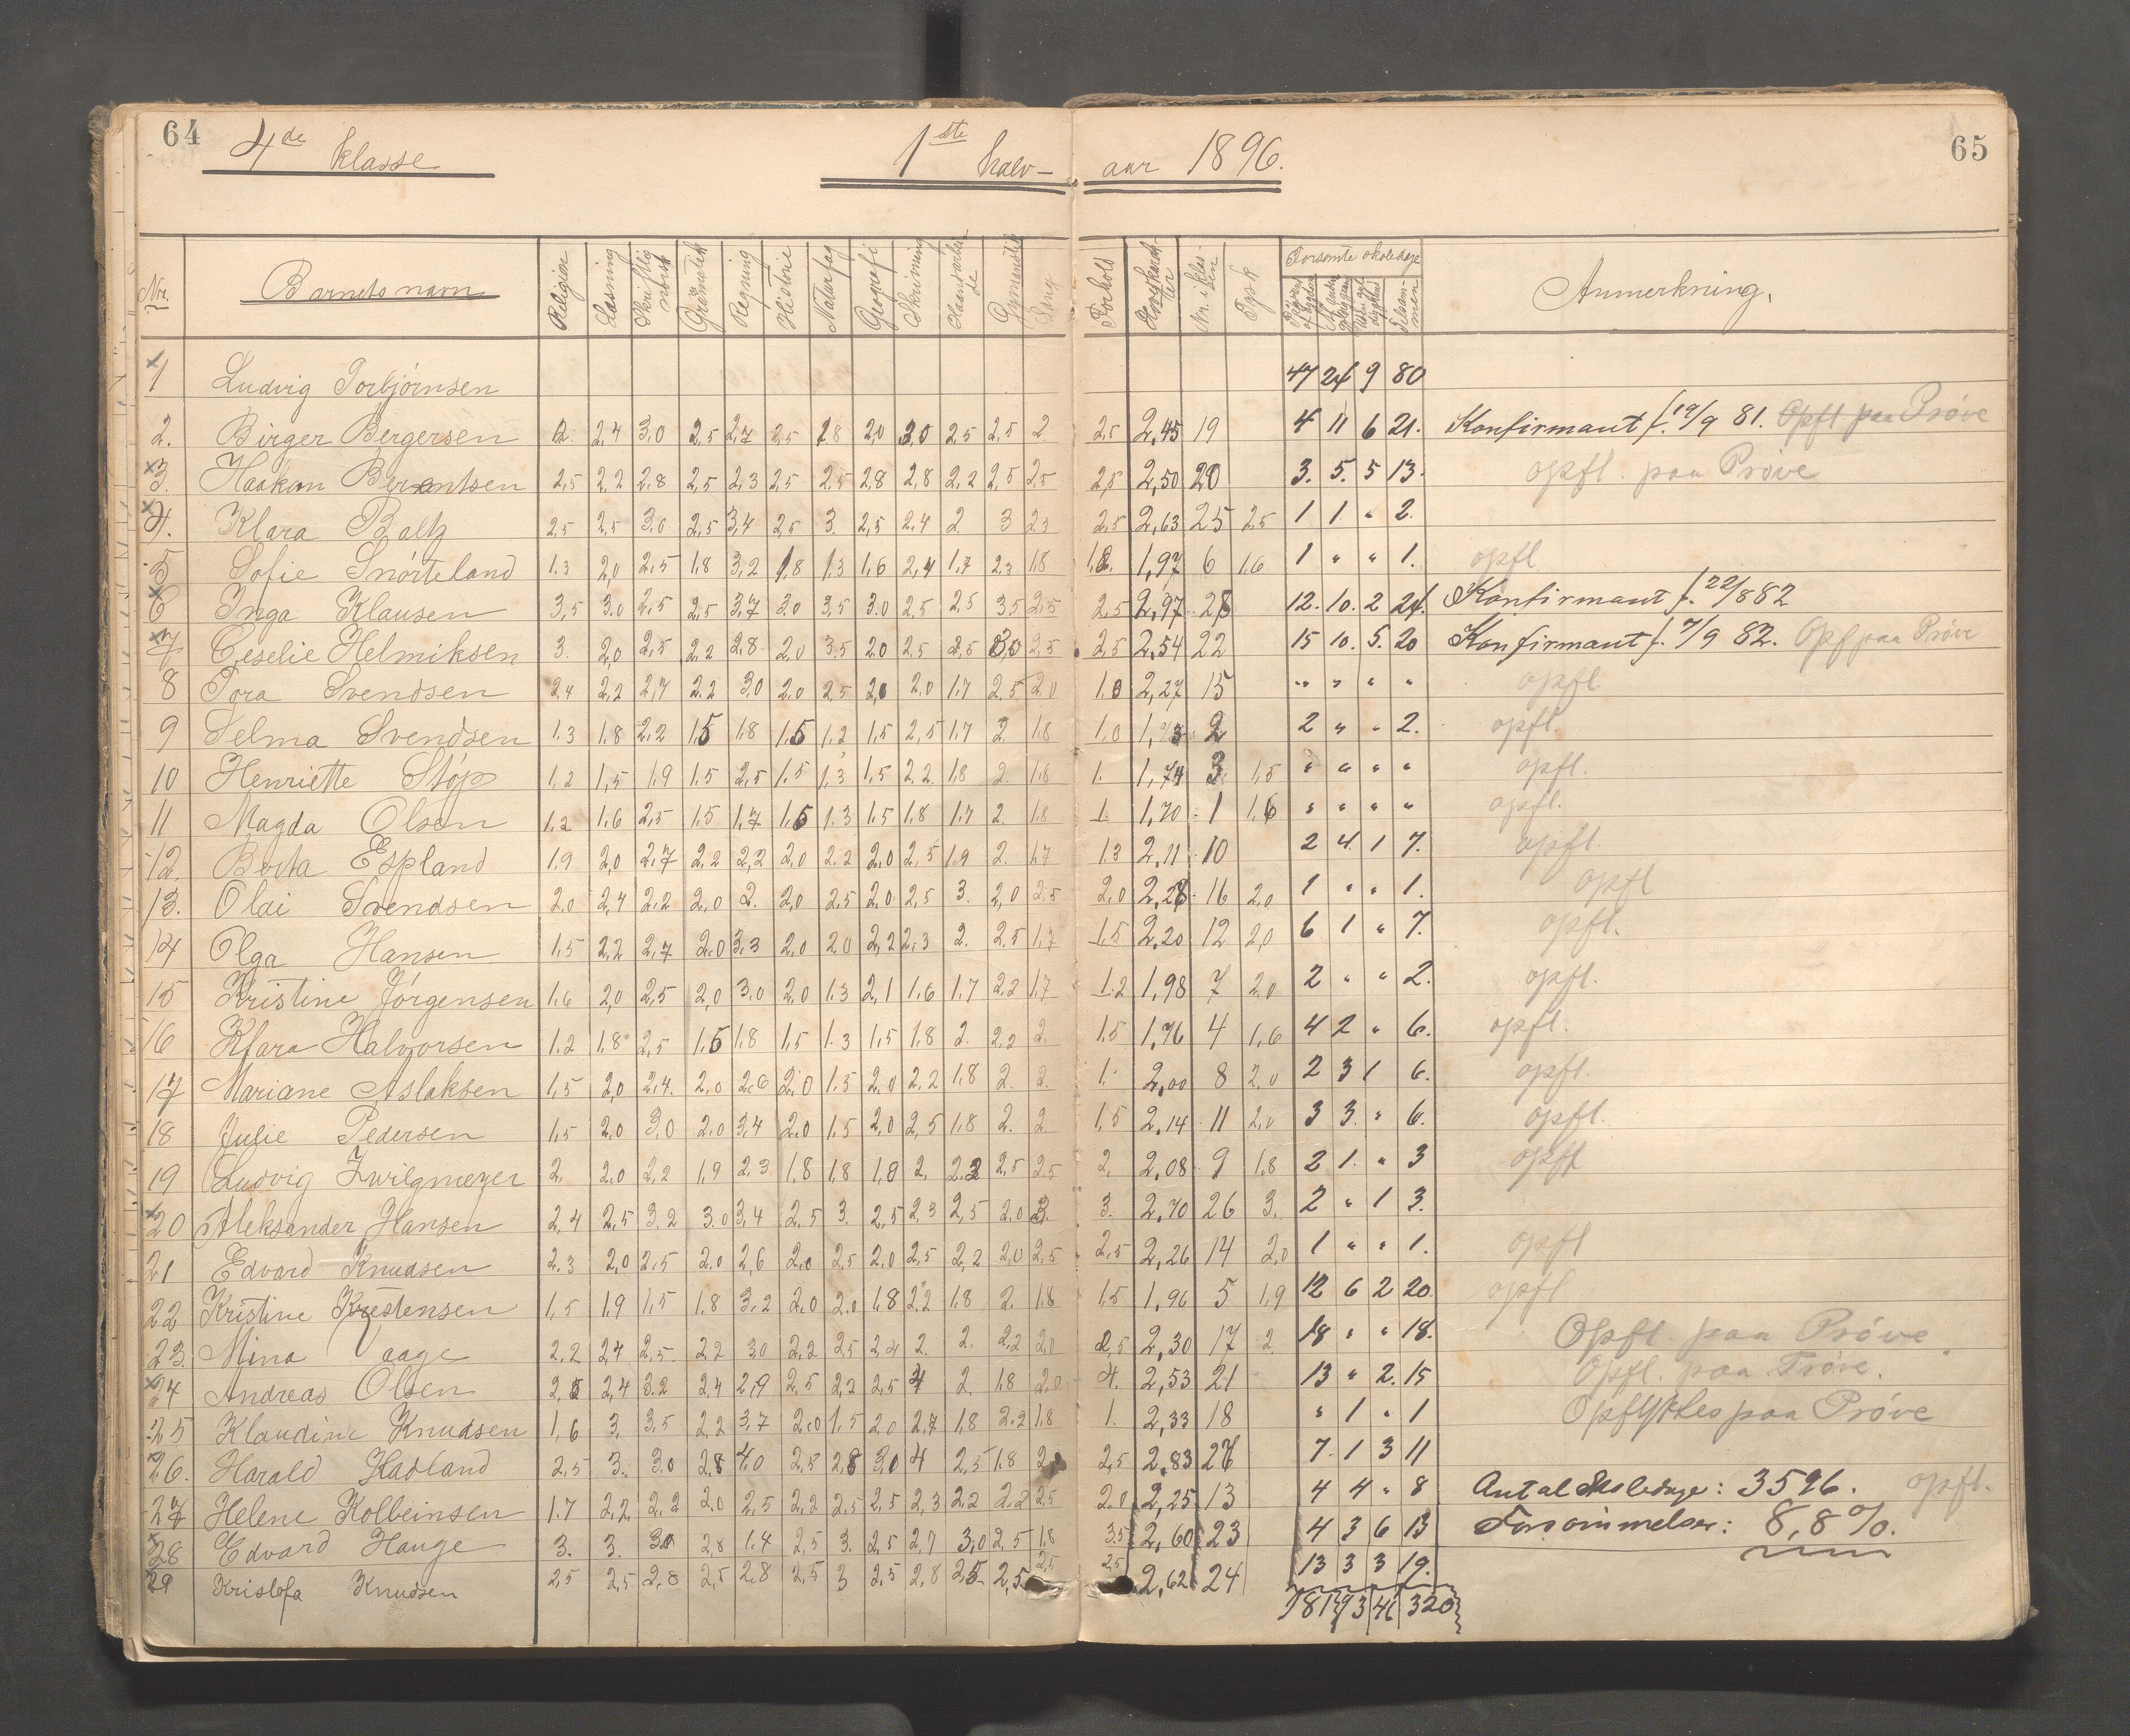 64 65
4de klasse 1ste halv- aar 1896.
Nr. Barnets navn Religion Læsning Skriftlig norsk Regning Historie Naturfag Geografi Skrivning Haandarbeide Gymnastik Sang Forhold Nr. i klassen Forsømte skoledage Tilsammen Anmerkning.
1 Ludvig Torbjörnsen 47 24 9 80
2. Birger Bergersen 2. 2,4 3,0 2,5 2,7 2,5 1,8 2,0 3,0 2,5 2,5 2 2,5 2,45 19 4 11 6 21. Konfirmant f. 19/9 81. Opfl paa Prøve
3. Haakon Berentsen 2,5 2,2 2,8 2,5 2,3 2,5 2,5 2,8 2,8 2,2 2,5 2,5 2,5 2,50 20 3. 5. 5 13. opfl. paa Prøve
4. Klara Baltz 2,5 2,5 3,0 2,5 3,4 2,5 3. 2,5 2,4 2. 3 2,3 2,5 2,63 25 2,5 1 1. " 2.
5 Sofie Snörteland 1.3 2,0 2,5 1,8 3,2 1,8 1,3 1,6 2,4 1,7 2,3 1,8 1,8. 1,97 6 1,6 1 " " 1. opfl
6 Inga Klausen 3,5 3.0 2,5 2,5 3,7 3,0 3,5 3.0 2,5 2,5 3,5 2,5 2,5 2,97 28 12. 10. 2 24. Konfirmant f. 22/8 82
7 Ceselie Helmiksen 3. 2,0 2,5 2,2 2,8 2,0 3,5 2,0 2,5 2,5 3,0 2,5 2,5 2,54 22 15 10. 5. 20 Konfirmant f. 7/9 82. Opf paa Prøve
8 Tora Svendsen 2,4 2,2 2,7 2,2 3,0 2,0 2,5 2,0 2,0 1,7 2,5 2,0 1,0 2,27 15 " " " " opfl
9 Selma Svendsen 1.3 1,8 2,2 1,5 1,8 1,5 1,2 1,5 2,5 1,7 2. 1,8 1,0 2 2 " " 2. opfl.
10 Henriette Stöp 1,2 1,5 1,9 1,5 2,5 1,5 1,3 1,5 2,2 1,8 2. 1,8 1. 1,74 3. 1,5 " " " " opfl.
11 Magda Olsen 1.2 1,6 2,5 1,5 1,7 1,5 1,3 1,5 1,8 1,7 2. 1,8 1. 1,70 1 1,6 " " " " opfl.
12. Berta Espland 1,9 2,0 2,7 2,2 2,2 2,0 2,2 2,0 2,5 1,9 2. 1,7 1,3 2,11 10 2 4 1 7. opfl.
13. Olai Svendsen 2.0 2,4 2,2 2,0 2. 2,0 2,5 2,0 2,5 3. 2,0 2,5 2,0 2,28 16 2,0 1 " " 1. opfl
14 Olga Hansen 1,5 2,2 2,7 2,0 3,3 2,0 2,0 2,2 2,3 2. 2,5 1,7 1,5 2,20 12 2,0 6 1 " 7. opfl.
15 Kristine Jörgensen 1,6 2,0 2,5 2,0 3,0 2,0 1,3 2,1 1,6 1,7 2,2 1,7 1.2 1,98 7 2,0 2 " " 2. opfl.
16 Klara Halvorsen 1.2 1,8 2,5 1,5 1,8 1,5 1.3 1,5 1,8 2. 2,2 2. 1,5 1,76 4 1,6 4 2 " 6. opfl.
17 Mariane Aslaksen 1,5 2,0 2,4. 2,0 2,6 2,0 1,5 2,0 2,2 1,8 2. 2. 1. 2,00 8 2,0 2 3 1 6. opfl.
18 Julie Pedersen 1,5 2,0 3,0 2,0 3,4 2,0 1,5 2,0 2,5 1,8 2. 2. 1,5 2,14 11 2,0 3 3. " 6. opfl.
19 Ludvig Zwilgmeyer 2. 2,0 2,2 1,9 2,3 1,8 1,8 1,8 2. 2,2 2,5 2,5 2. 2,08 9 1,8 2 1. " 3 opfl
20 Aleksander Hansen 2,4 2,5 3,2 3,0 3,4 2,5 3. 2,5 2,3 2,5 2,0 3. 3. 2,70 26 3. 2 " 1 3.
21 Edvard Knudsen 2.3 2,0 2,5 2,0 2,6 2,0 2,5 2,0 2,5 2,2 2,0 2,5 2,5 2,26 14 2,0 1 " " 1. opfl
22 Kristine Krestensen 1,5 1,9 1,5 1,8 3,2 2,0 2,0 1,8 2,2 1,8 2. 1,8 1,5 1,96 5 1,9 12 6 2 20. opfl
23. Mina Vaage 2,2 2,4 2,5. 2,2 3,0 2,2 2,5 2,4 2. 2. 2,2 2,0 2,5 2,30 17 2. 18 " " 18. Opfl. paa Prøve
24 Andreas Olsen 2,5 2,4 3,2 2,4 2,9 2,5 2,2 2,5 4 2. 1,8 2,0 4. 2,53 21 13 " 2. 15 Opfl. paa Prøve.
25 Klaudine Knudsen 1,6 3, 3,5 2,2 3,7 2,0 1,5 2,0 2,7 1,8 2,2 1,8 1. 2,33 18 " 1 " 1 Opflyttes paa Prøve
26. Harald Hadland 2,5 3. 3,0 2,8 4,0 2,5 2,8 3,0 4 2,5 1,8 2,5 2,83 27 7. 1 3 11
27 Helene Kolbeinsen 1.7 2,2 2,2 2,0 2,5 2,2 2,5 2,5 2,3 2,2 2,2 2,5 2,0 2,25 13 4 4 " 8 Antal Skoledage: 3596. opfl.
28 Edvard Hauge 3. 3. 3,0 2,8 1,4 2,5 3. 2,5 2,7 3,0 2,5 1,8 3,5 2,60 23 4 3 6 13 Forsømmelser: 8,8 %.
29 Kristofa Knudsen 2,5 2,5 2,8 2,5 2,8 2,5 3 2,5 2,8 2,5 2,5 2,5 2,5 2,62 24 13 3 3 19.
181 93 46 320